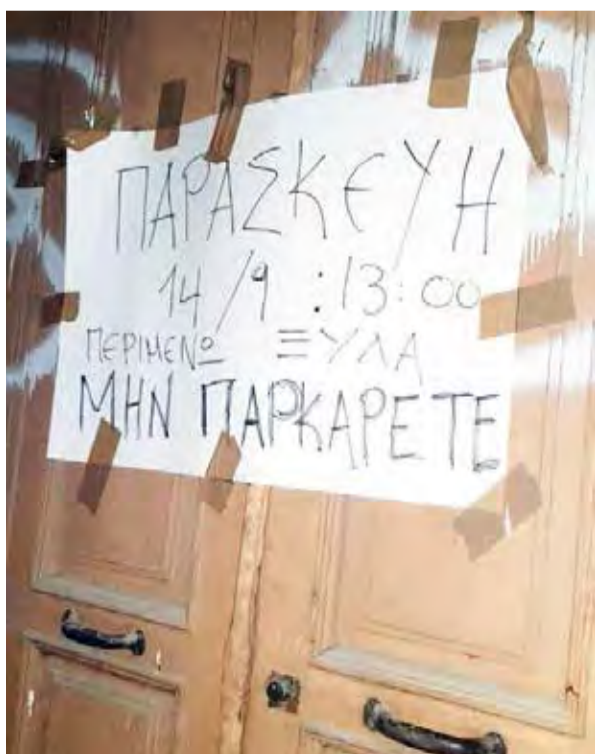 ΠΑΡΑΣΚΕΥΗ
14/9 : 13:00
ΠΕΡΙΜΕΝΩ ΞΥΛΑ
ΜΗΝ ΠΑΡΚΑΡΕΤΕ